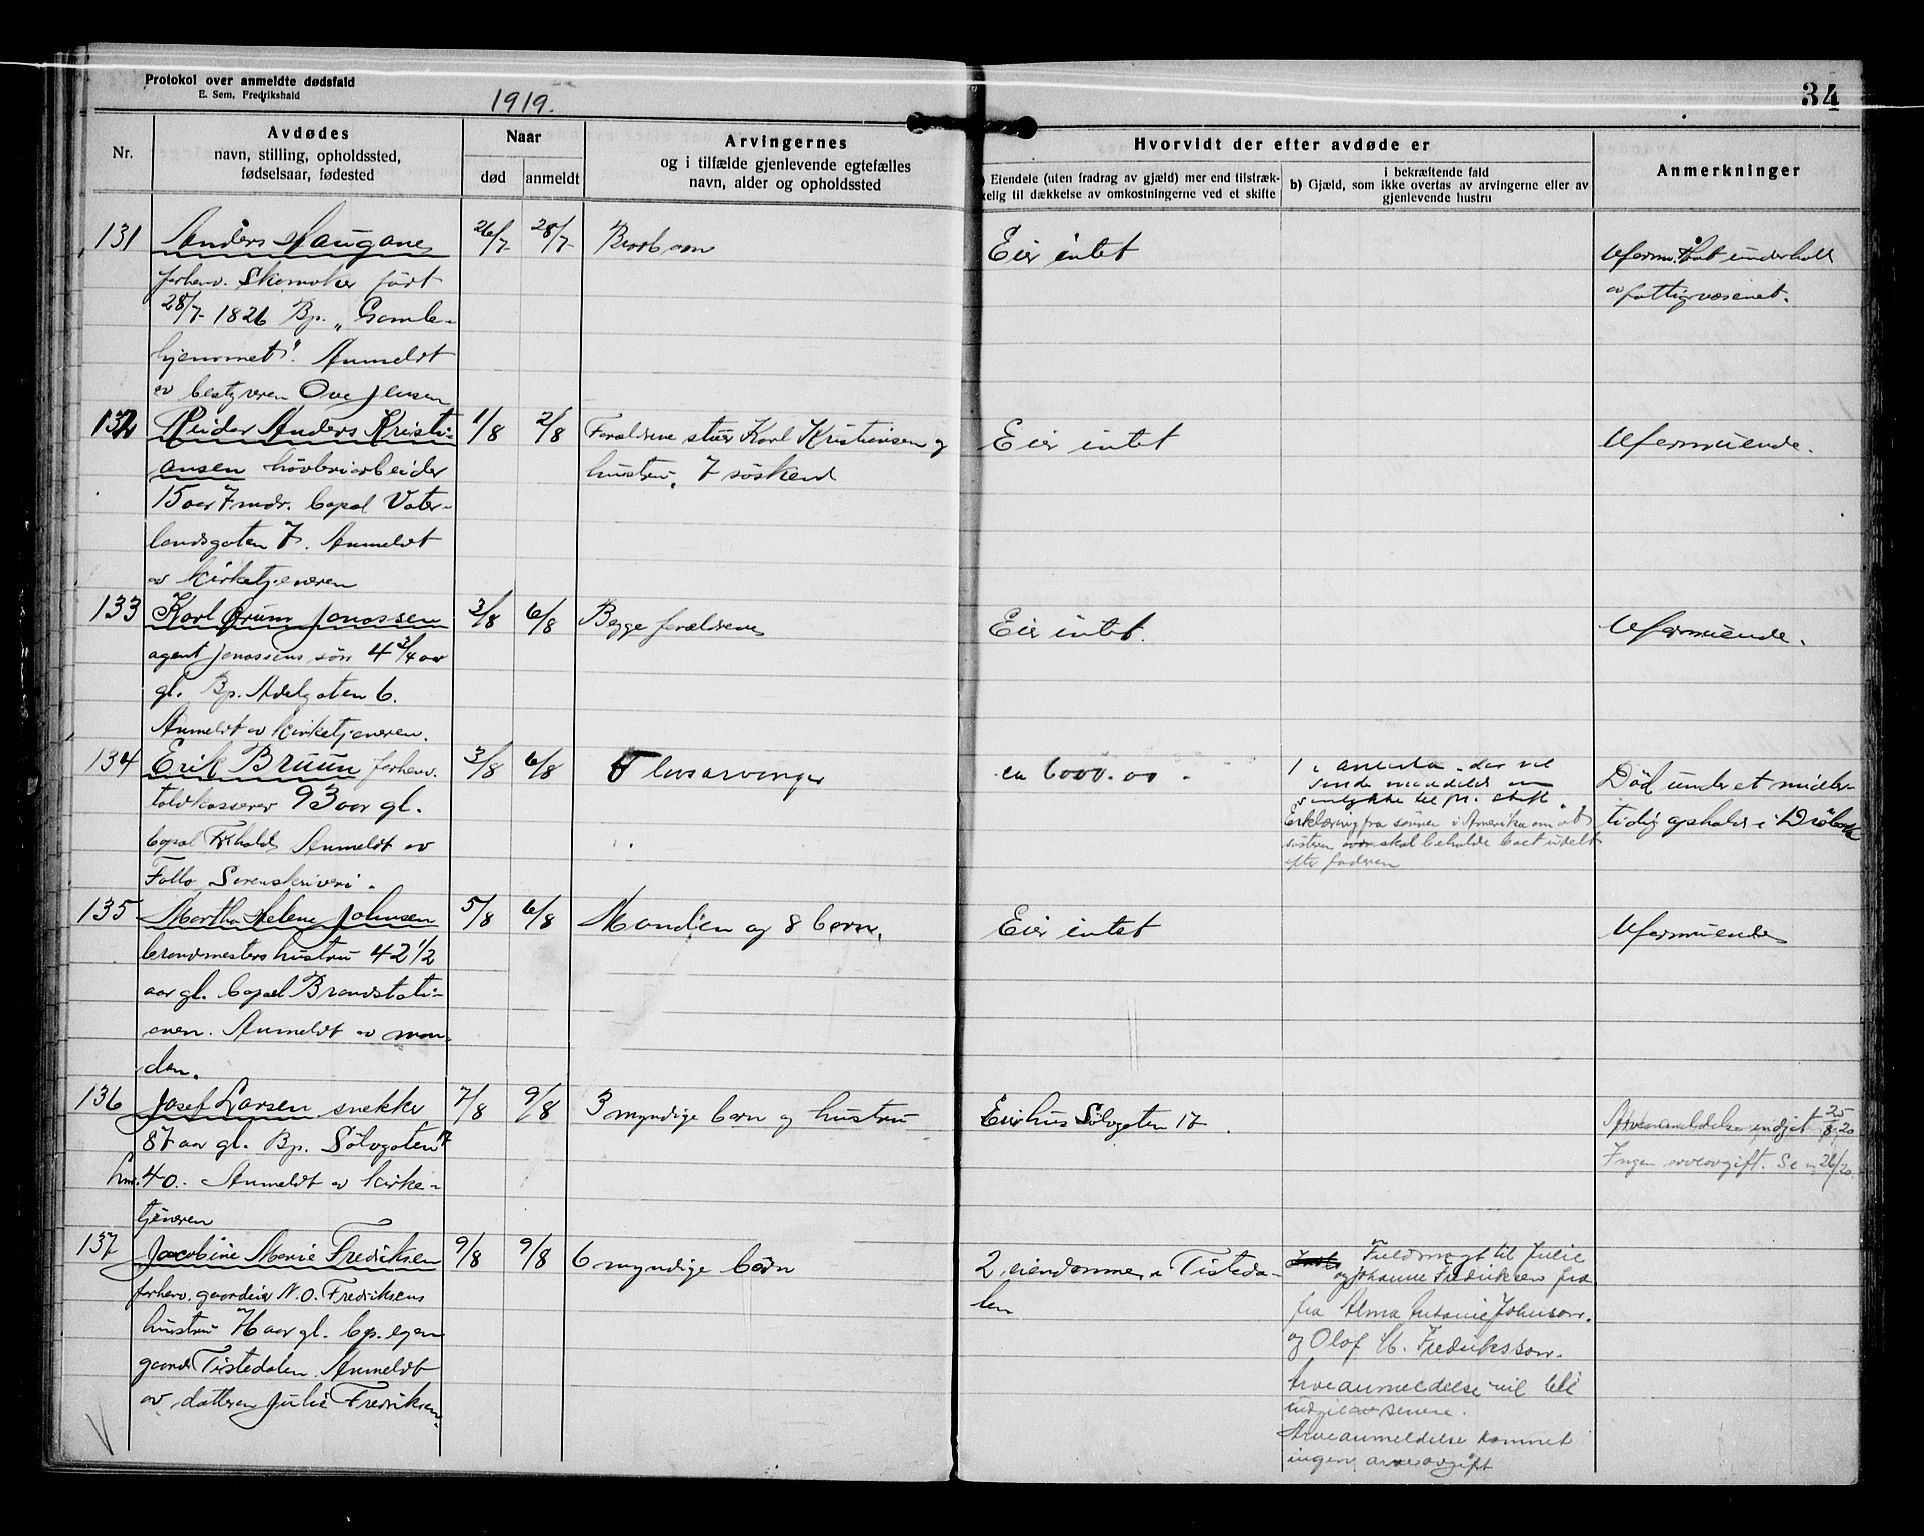 Protokol over anmeldte dødsfald
E. Sem, Fredrikshald
1919.
34
Nr.
Avdødes
navn, stilling, opholdssted,
fødselsaar, fødested
Naar
død
anmeldt
Arvingernes
og i tilfælde gjenlevende egtefælles
navn, alder og opholdssted
Hvorvidt der efter avdøde er
Eiendele (uten fradrag av gjæld) mer end tilstræk-
kelig til dækkelse av omkostningerne ved et skifte
i bekræftende fald
b) Gjæld, som ikke overtas av arvingerne eller av
gjenlevende hustru
Anmerkninger
131
Anders Haugane
forhenv. Skomaker født
28/7 1826 Bp. „Gamle-
hjemmet". Anmeldt
av bestyreren Ove Jensen
26/7
28/7
Eier intet
Uformu. Hat underhold
av fattigvæsenet.
132
Reidar Anders Kristi-
ansen høvleriarbeider
15 aar 7 mdr. bopæl Vater-
landsgaten 7. Anmeldt
av kirketjeneren
1/8
2/8
Forældrene Karl Kristiansen og
hustru, 7 søskend
Eier intet
Uformuende.
133
Karl Ørum Jonassen
agent Jonassens søn 4 3/4 aar
gl. Bp. Adelgaten 6.
Anmeldt av kirketjeneren.
3/8
6/8
Begge forældrene
Eier intet.
Uformuende.
134
Erik Bruun forhenv.
toldkasserer 93 aar gl.
bopæl Frhald Anmeldt av
Follo Sorenskriveri.
3/8
6/8
Livsarvinger
ca 6000.00
Erklæring fra sønner i Amerika om at
søsteren skal beholde boet udelt
efter faderen
Død under et midler-
tidig ophold i Drøbak
135
Martha Helene Johnsen
brandmesters hustru 42 1/2
aar gl. bopæl Brandstati-
onen. Anmeldt av man-
den.
5/8
6/8
Manden og 8 barn.
Eier intet
Uformuende
136
Josef Larsen snekker
87 aar gl. Bp. Sølvgaten 17
40. Anmeldt av kirke-
tjeneren
7/8
9/8
3 myndige barn og hustru
Eier hus Sølvgaten 17.
Arveanmeldelse indgit 25/8 20
Ingen arveavgift. Se 26/20
137
Jacobine Marie Fredriksen
forhenv. gaardeier N. O. Fredriksens
hustru 76 aar gl. bp. egen
gaard Tistedalen. Anmeldt
av datteren Julie Fredriksen.
9/8
9/8
6 myndige barn
2 eiendomme i Tisteda-
len
Fuldmagt til Julie
og Johanne Fredriksen fra
fra Alma Antonie Johnson.
og Olof M. Fredriksson.
Arveanmeldelse vil bli
senere.
Arveanmeldelse kommet
ingen arveavgift